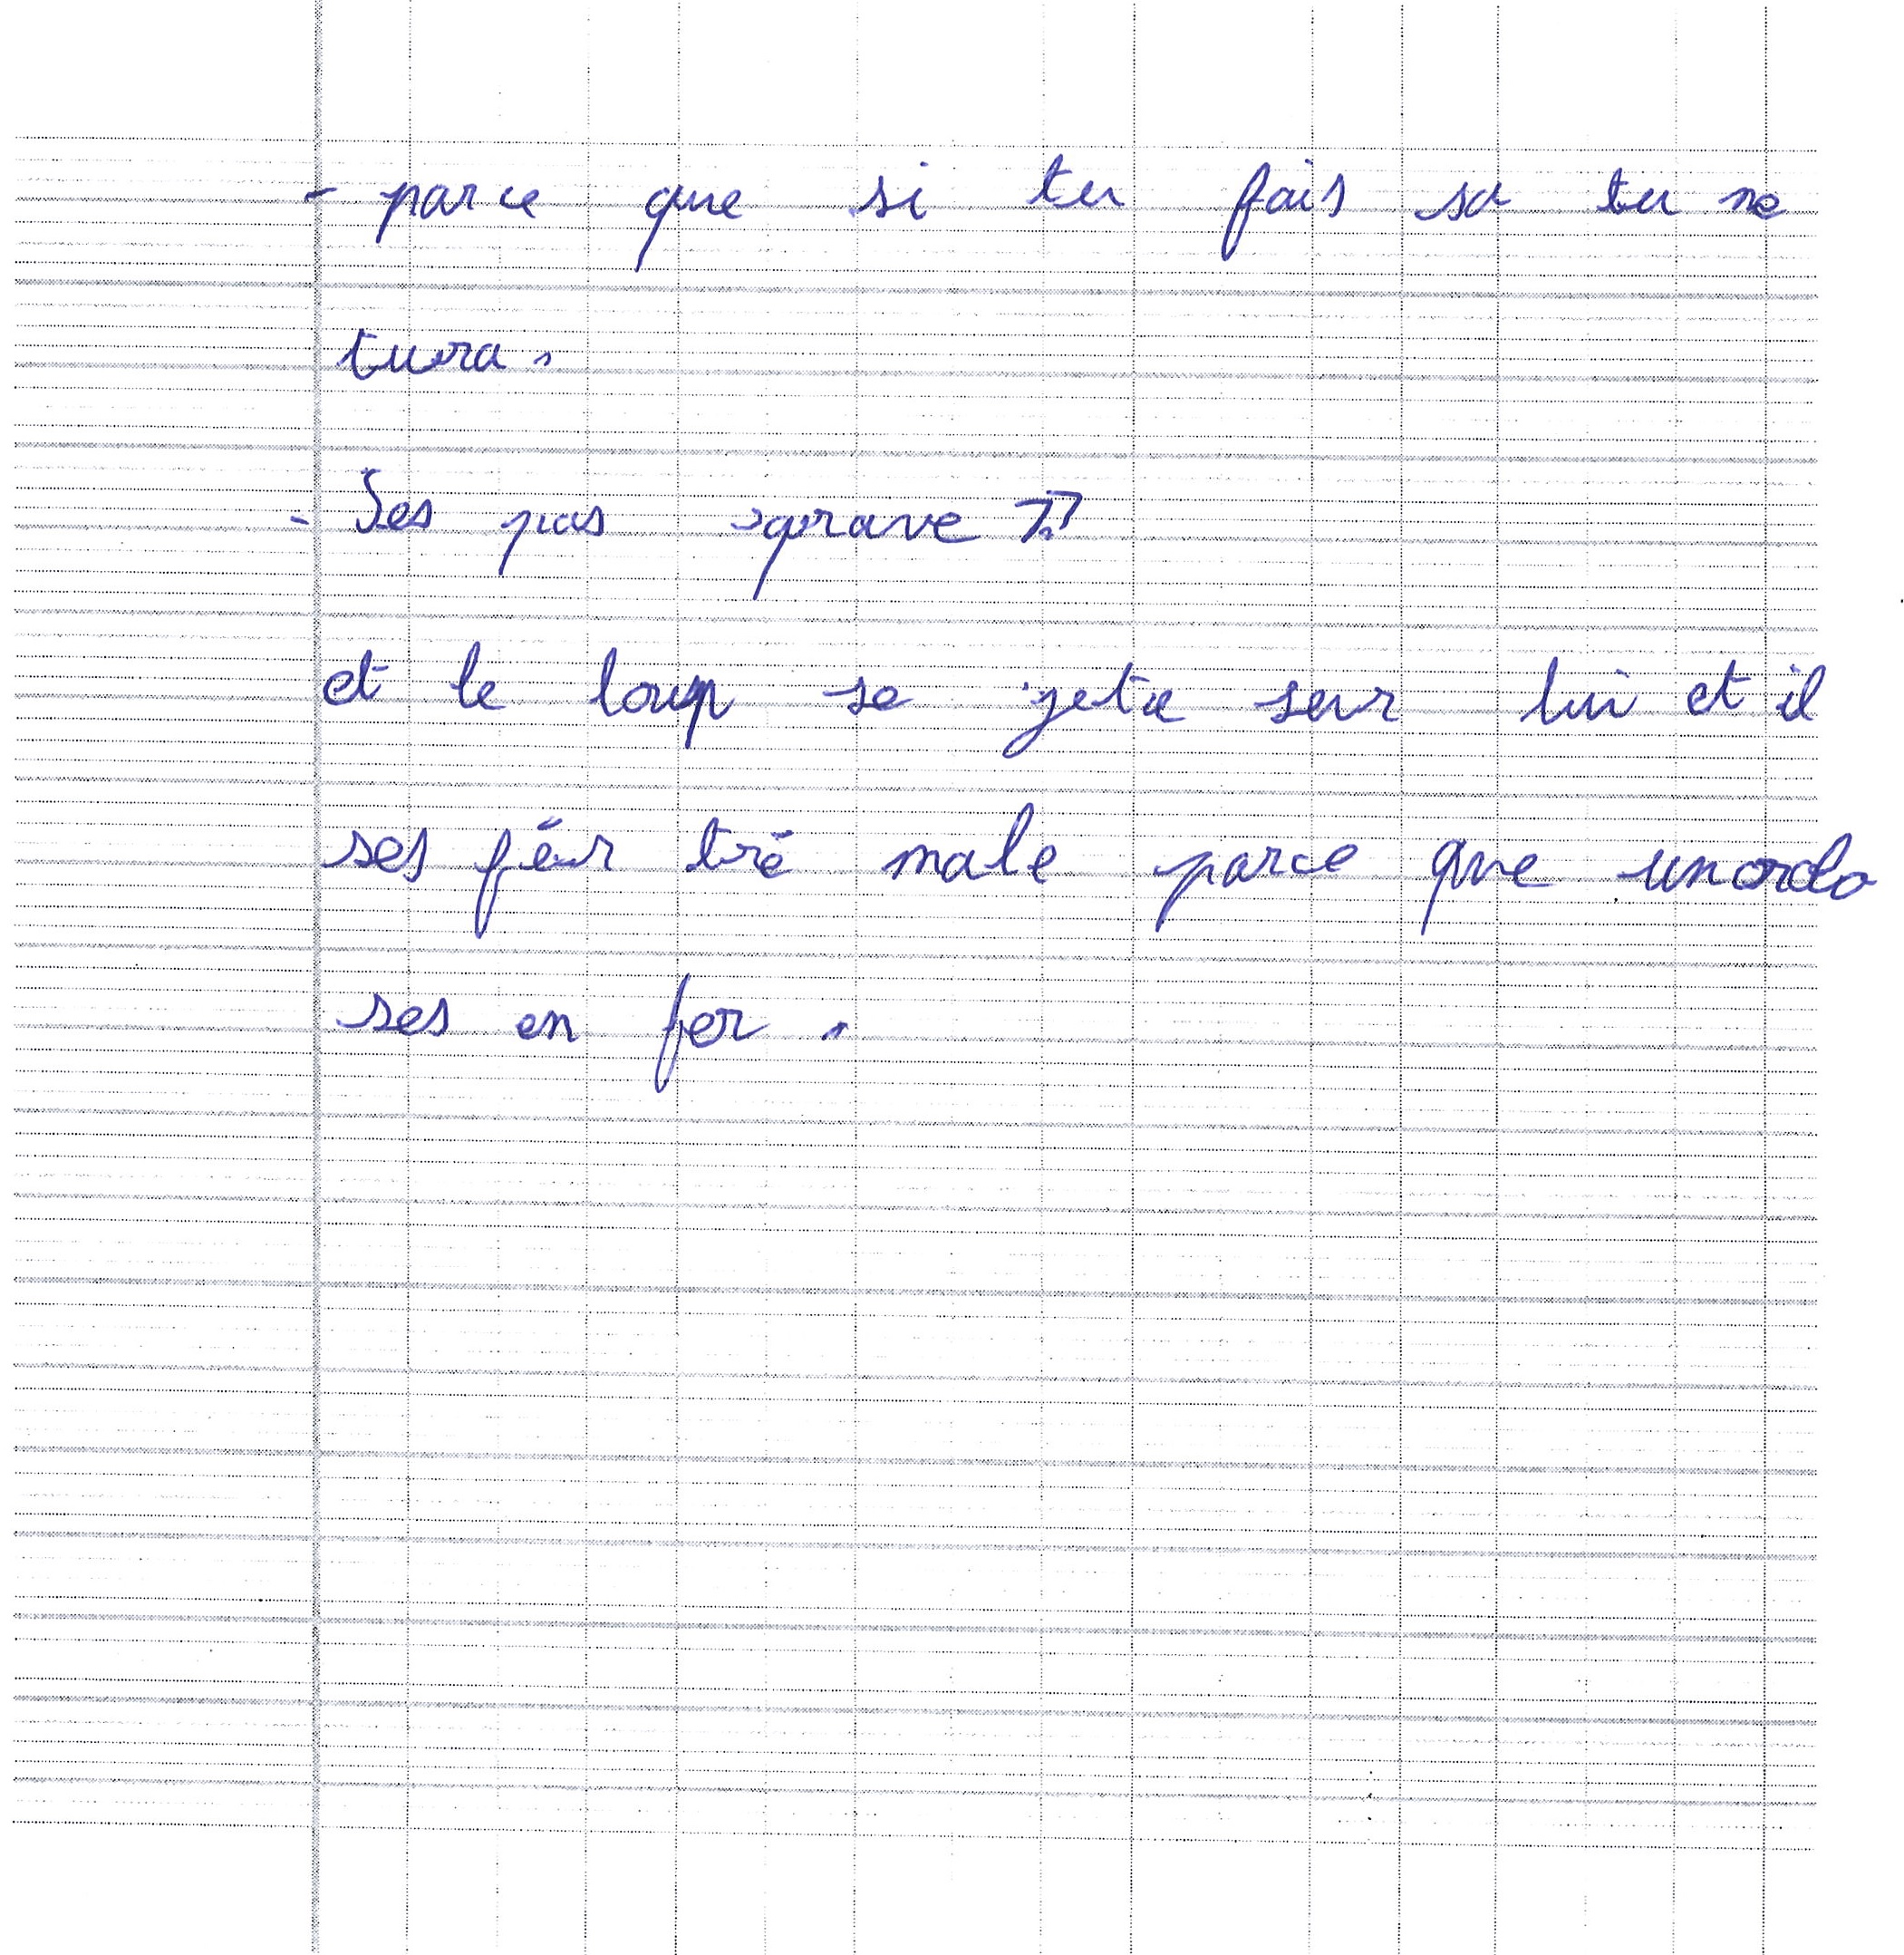 - parce que si tu fais sa tu me
tura.
- Ses pas grave !!
et le loup se jete sur lui et il
ses fér tré male parce que un ordo
ses en fer.